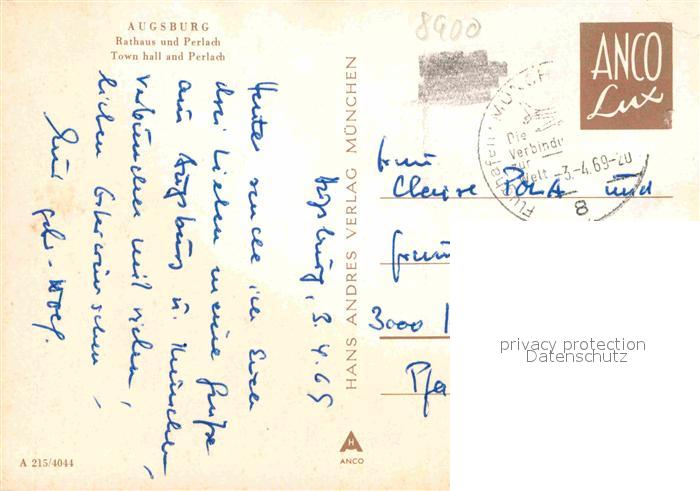 8900
AUGSBURG
Rathaus und Perlach
Town hall and Perlach
Augsburg, 3.4.69
Heute sende ich Euch
drei Lieben meine Grüße
aus Augsburg u. München,
verbunden mit vielen,
lieben Osterwünschen,
HANS ANDRES VERLAG MÜNCHEN
H A
ANCO
A 215/4044
ANCO
Lux
Flughafen MÜNCH
Die
Verbindu
zur
Welt
-3.-4.69-20
8
Frau
und
3000
Pfa
privacy protection
Datenschutz